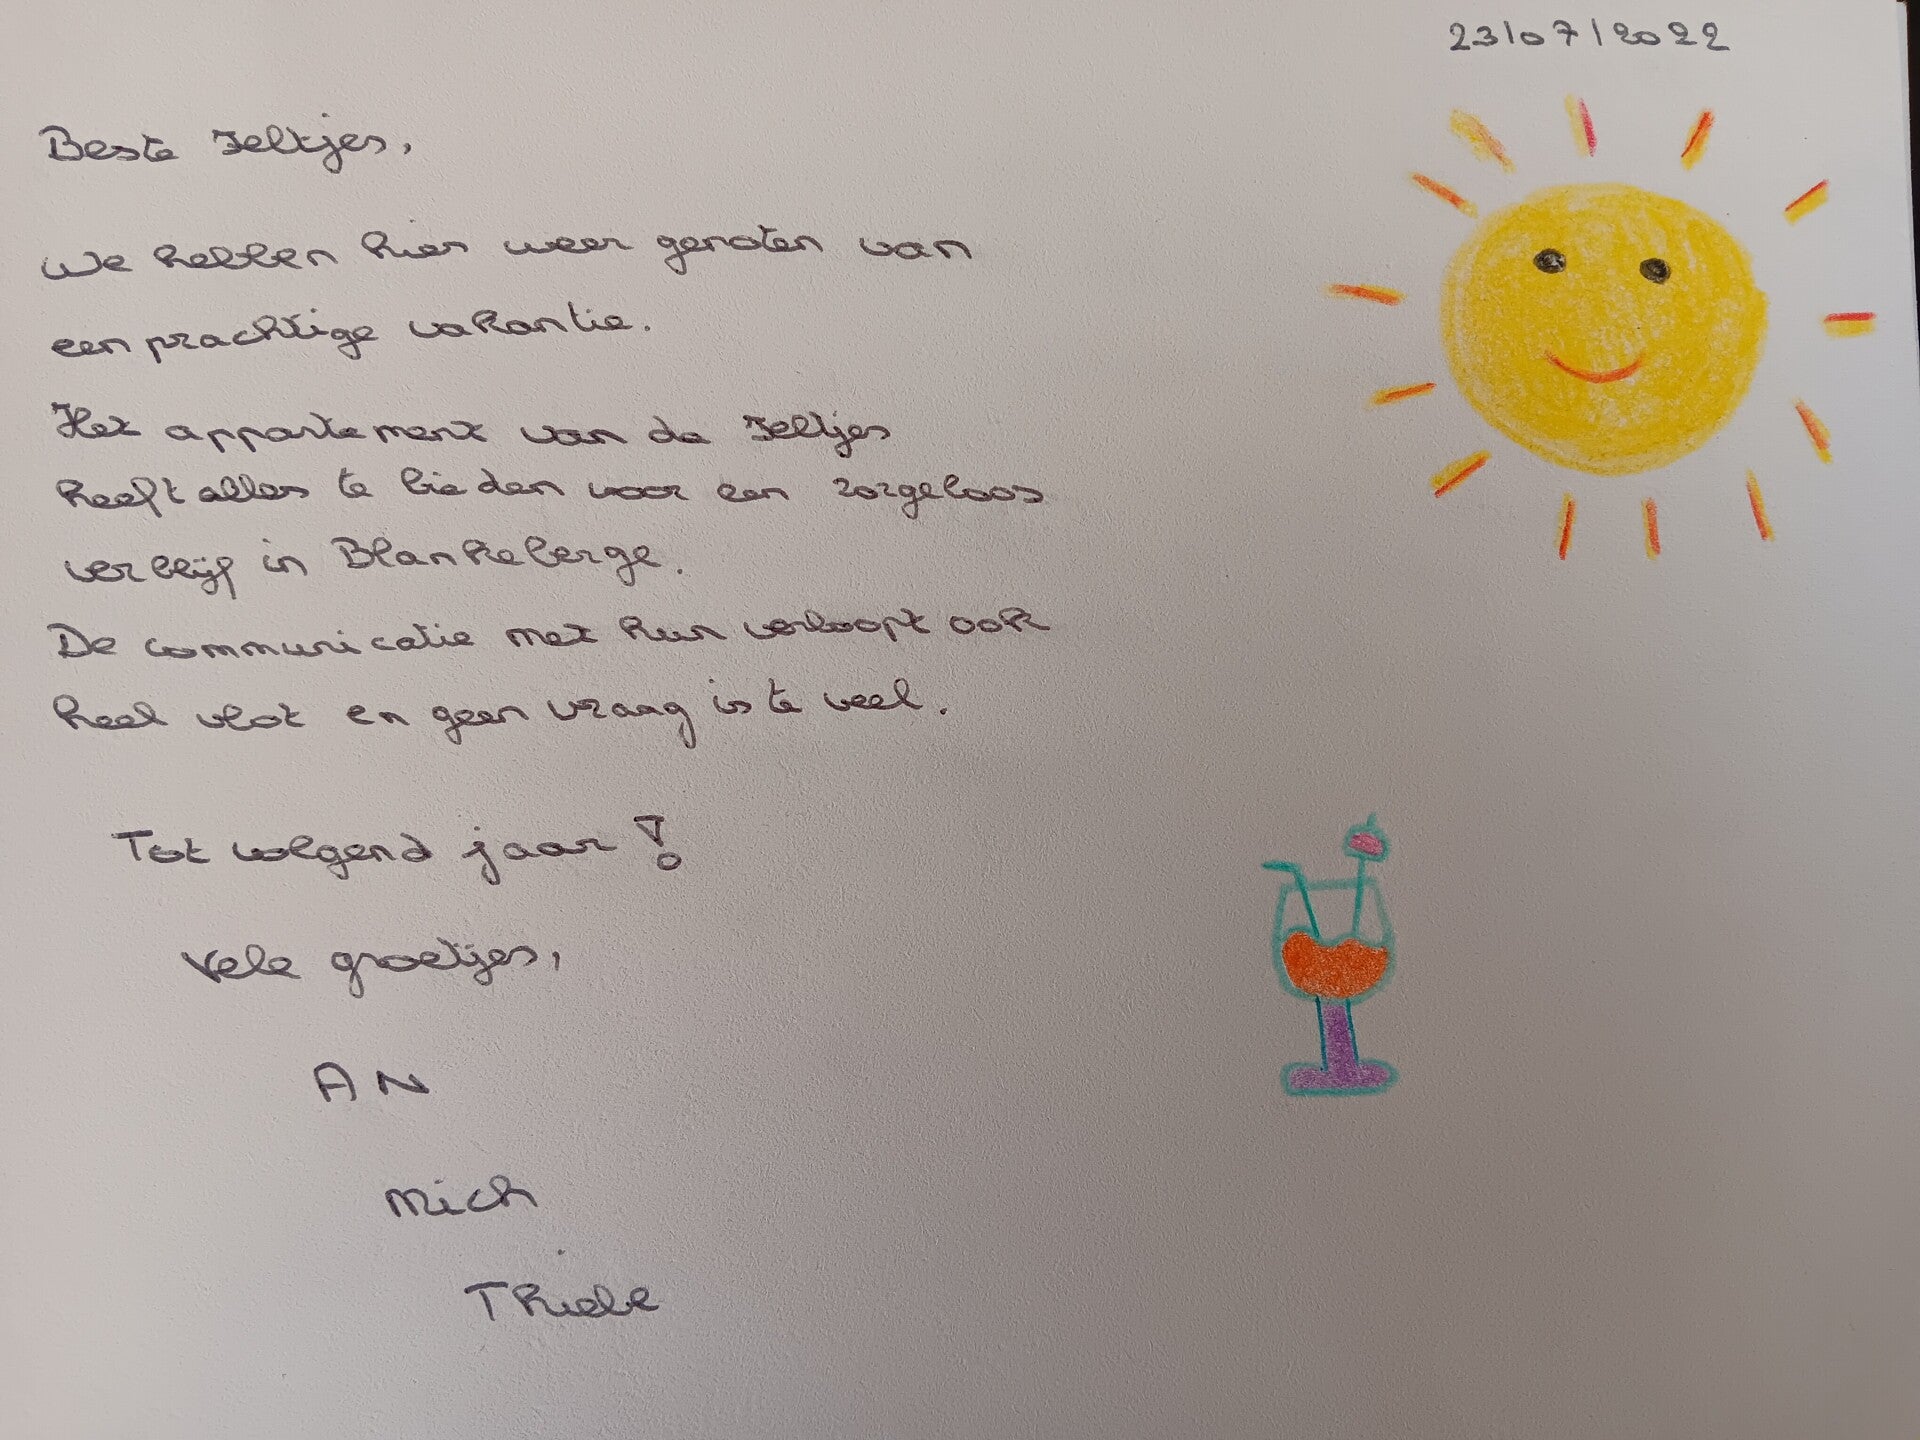 23/07/2022
Beste Jeltjes,
We hebben hier weer genoten van
een prachtige vakantie.
Het appartement van de Jeltjes
heeft alles te bieden voor een zorgeloos
verblijf in Blankeberge.
De communicatie met hun verloopt ook
heel vlot en geen vraag is te veel.
Tot volgend jaar!
Vele groetjes,
AN
Mich